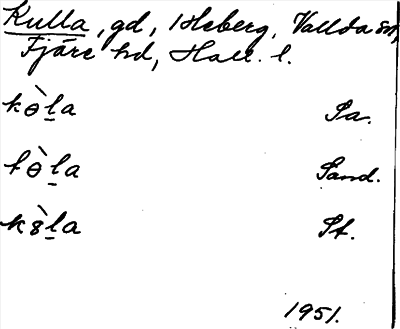 Kulla, gd, Heberg, Vallda sn,
Fjäre hd, Hall. l.
kɵ̀l̠a Sa.
kɵ̀l̠a Sand.
k8̀l̠a St.
1951.